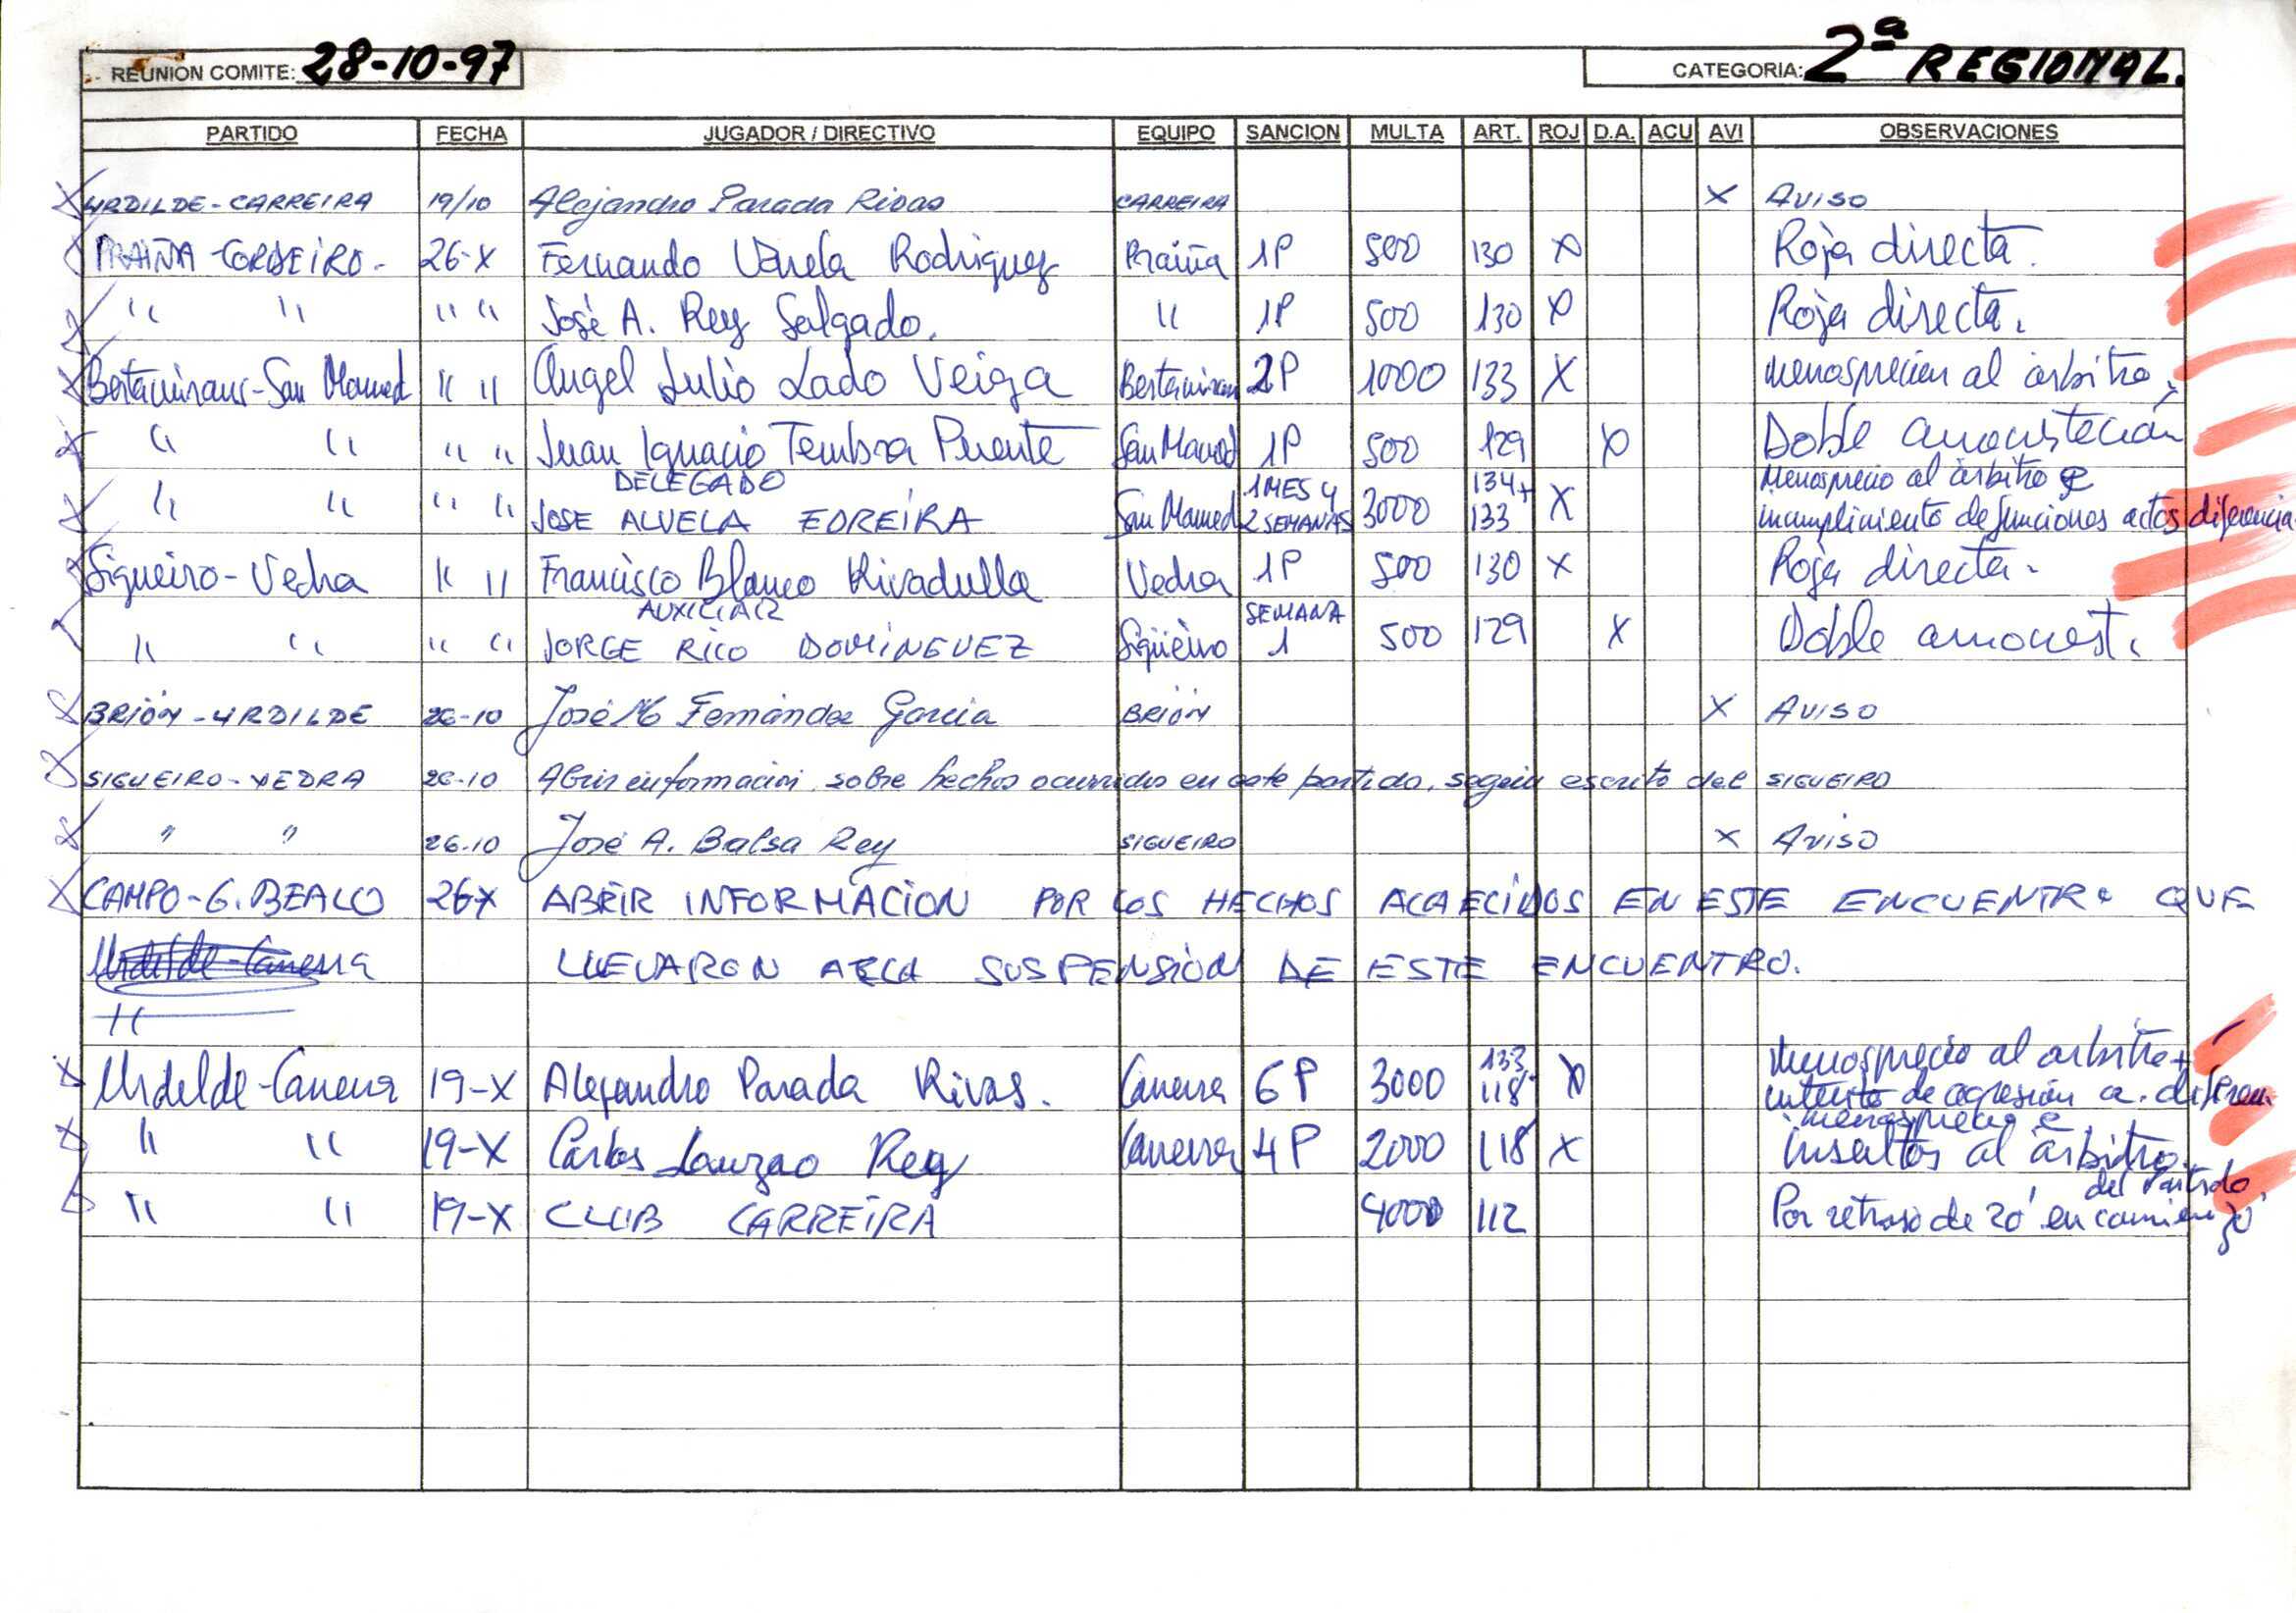 REUNION COMITE: 28-10-97 CATEGORIA: 2ª REGIONAL.
PARTIDO FECHA JUGADOR / DIRECTIVO EQUIPO SANCION MULTA ART. ROJ D.A. ACU AVI OBSERVACIONES
X URDILDE - CARREIRA 19/10 Alejandro Parada Rivas CARREIRA X AVISO
PRAIÑA - CORDEIRO - 26-X Fernando Varela Rodriguez Praiña 1P 500 130 X Roja directa.
" " " " José A. Rey Salgado. " 1P 500 130 X Roja directa.
X Bertamirans - San Mamed " " Angel Julio Lado Veiga Bertamiran 2P 1000 133 X menosprecion al árbitro.
X " " " " Juan Ignacio Tembra Puente San Mamed 1P 500 129 X Doble amonestación
DELEGADO
X " " " " JOSE ALVELA EDREIRA San Mamed 1 MES y 2 SEMANAS 3000 134+ 133 X Menosprecio al árbitro e
incumplimiento de funciones actos diferencia
X Sigueiro - Vedra " " Francisco Blanco Rivadulla Vedra 1P 500 130 X Roja directa.
AUXILIAR
" " " " JORGE RICO DOMINGUEZ Sigüeiro SEMANA 1 500 129 X Doble amonest.
X BRIÓN - URDILDE 26-10 José M Fernández García BRIÓN X AVISO
X SIGUEIRO - VEDRA 26-10 Abrir información, sobre hechos ocurridos en este partido, según escrito del SIGUEIRO
X " " 26-10 José A. Balsa Rey SIGUEIRO X AVISO
X CAMPO - G. BEALO 26X ABRIR INFORMACION POR LOS HECHOS ACAECIDOS EN ESTE ENCUENTRO QUE
LLEVARON A LA SUSPENSIÓN DE ESTE ENCUENTRO.
X Urdilde - Carreira 19-X Alejandro Parada Rivas. Carreira 6P 3000 133+ 118 X Menosprecio al arbitro +
intento de agresión a. diferen.
X " " 19-X Carlos Lauzao Rey Carreira 4P 2000 118 X menosprecio e
insultos al árbitro.
" " 19-X CLUB CARREIRA 4000 112 Por retraso de 20' en comienzo
del Partido.